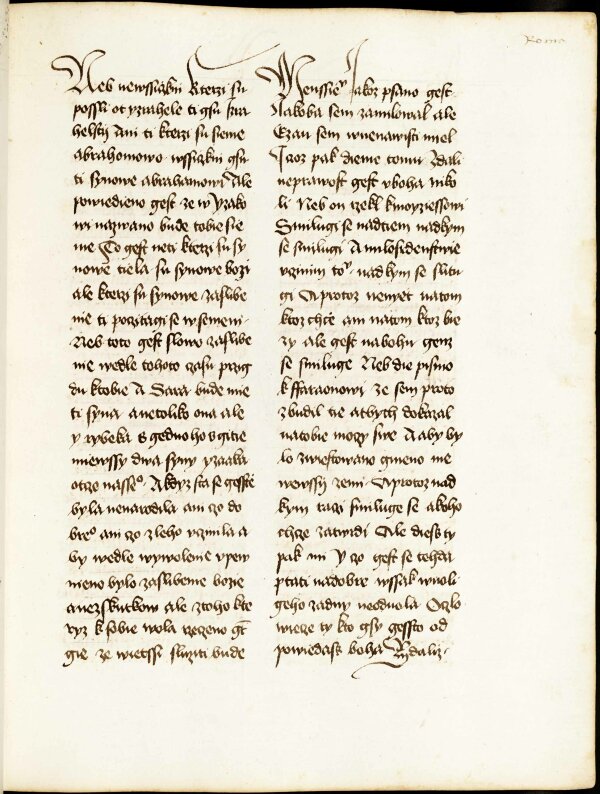 Rom
Neb newssiczkni kterzi su
possli ot yzrahele ti gsu izra
helsstij Ani ti kterzi su sieme
abrahomowo wssiczkni gsu
ti synowe abrahamowi Ale
powiedieno gest ze w yzako
wi nazwano bude tobie sie
me To gest neti kterzi su sy
nowe tiela su synowe bozi
ale kterzi su synowe zaslibe
nie ti pocztagi se w semeni
Neb toto gest slowo zaslibe
nie wedle tohoto czasu przig
du ktobie A Sara bude mie
ti syna a netoliko ona ale
y rybeka s gednoho sgitie
miewssy dwa syny yzaaka
otcze nasseº Akdyz sta se gesstie
byla nenarodila ani czo do
breº ani czo zleho vczinila a
by wedle wywolenie vpew
nieno bylo zaslibenie bozie
a nez skutkow ale ztoho kte
ryz k sobie wola rzeczeno gt
gie ze wietssi sluziti bude
Menssieº Jakoz psano gest
Jakoba sem zamilowal ale
Ezau sem wnenawisti miel
I coz pak dieme tomu Zdali
neprawost gest vboha niko
li Neb on rzekl k moyziessowi
Smilugi se nadtiem nadkym
se smilugi A milosidenstwie
vczinim toº nadkym se slitu
gi A protoz nenyet natom
ktoz chce ani natom ktoz bie
zy ale gest nabohu genz
se smiluge Neb die pismo
k ffaraonowi ze sem proto
zbudil tie abych dokazal
natobie moczy swe A aby by
lo zwiestowano gmeno me
wewssij zemi A protoz nad
kym raczi smiluge se a koho
chcze zatwrdi Ale diess ty
pak mi Y czo gest se tehda
ptati nadobre wssak wuoli
geho zadny neodwola O czlo
wiecze ty kto gsy gessto od
powiedass bohu Zdaliz